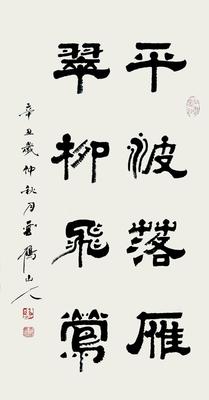 平波落雁
翠柳飛鶯
辛丑歲仲秋月雲鶴山人